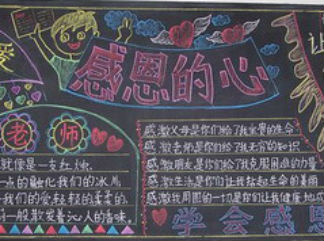 爱
感恩的心
让
老师
就像是一支红烛,
一点的融化我们的冰儿
我们的爱,轻轻的,柔柔的,
一般散发着沁人的香味。
感激父母是你们给了我宝贵的生命
感激老师是你们给了我无穷的知识
感激朋友是你们给了我克服困难的力量
感激生活是你们让我
感激我周围的一切是你们让我健康地成
学会感恩